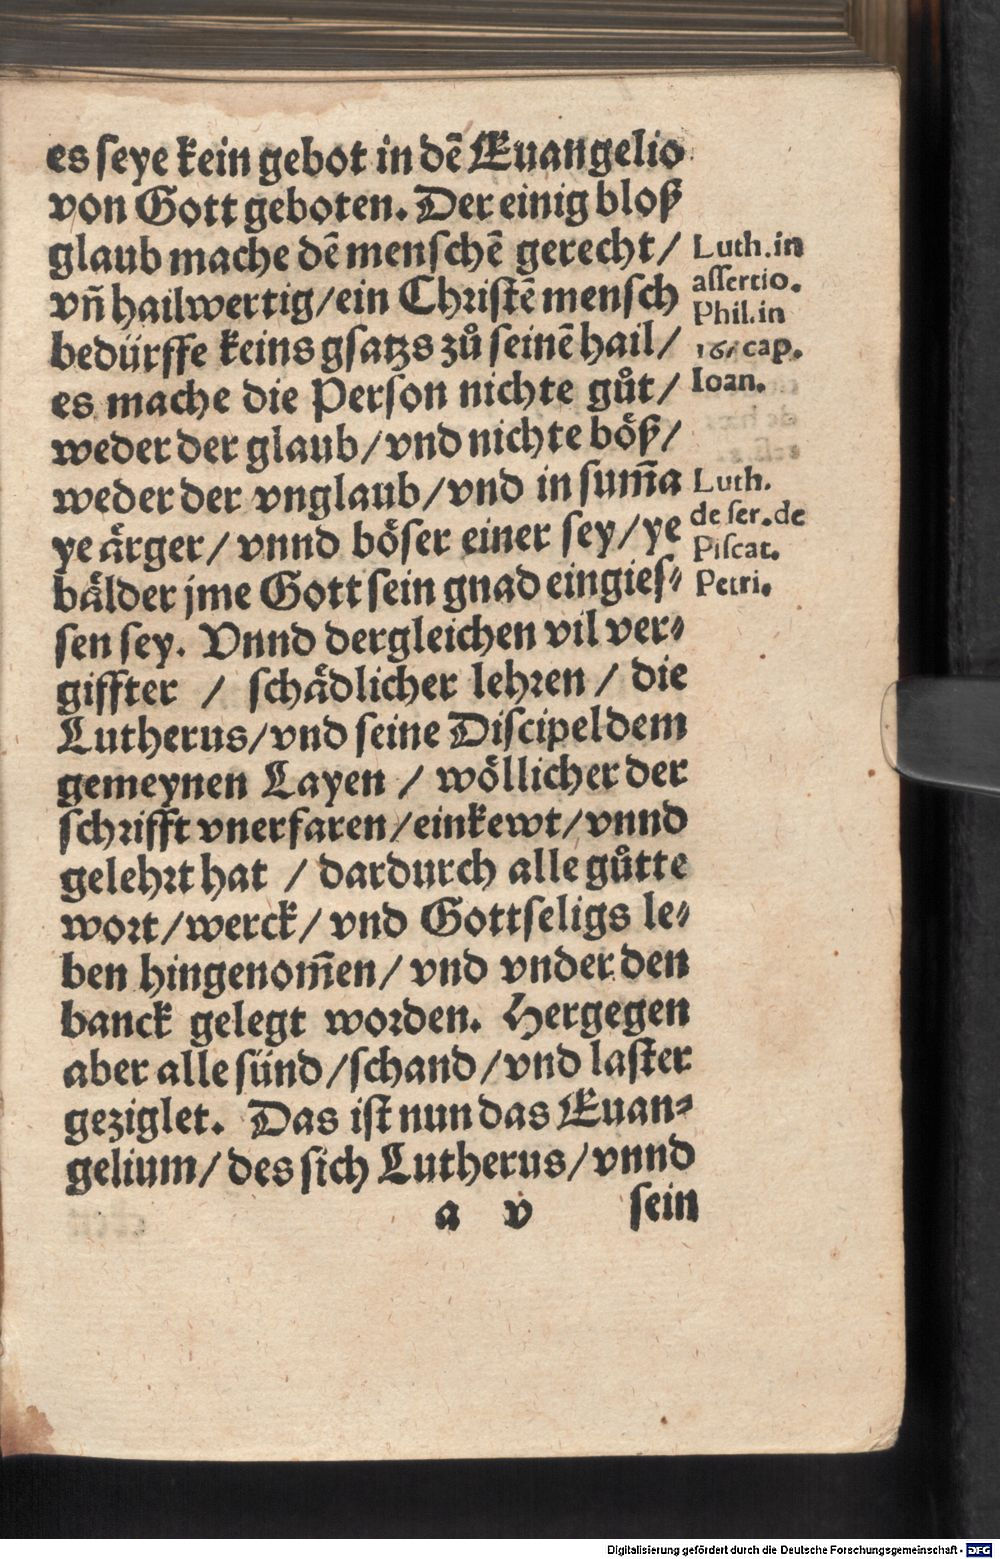 es seye kein gebot in dẽ Euangelio
von Gott geboten. Der einig bloß
glaub mache dẽ menschẽ gerecht/
vñ hailwertig/ein Christẽ mensch
bedürffe keins gsatzs zů seinẽ hail/
es mache die Person nichte gůt/
weder der glaub/vnd nichte böß/
weder der vnglaub/vnd in sum̃a
ye ärger/vnnd böser einer sey/ye
bälder jme Gott sein gnad eingies⸗
sen sey. Vnnd dergleichen vil ver⸗
giffter / schädlicher lehren / die
Lutherus/vnd seine Discipel dem
gemeynen Layen / wöllicher der
schrifft vnerfaren/einkewt/vnnd
gelehrt hat / dardurch alle gůtte
wort/werck/vnd Gottseligs le⸗
ben hingenom̃en/vnd vnder den
banck gelegt worden. Hergegen
aber alle sünd/schand/vnd laster
geziglet. Das ist nun das Euan⸗
gelium/des sich Lutherus/vnnd
a v sein
Luth.in
assertio.
Phil.in
16. cap.
Ioan.
Luth.
de ser.de
Piscat.
Petri.
Digitalisierung gefördert durch die Deutsche Forschungsgemeinschaft - DFG